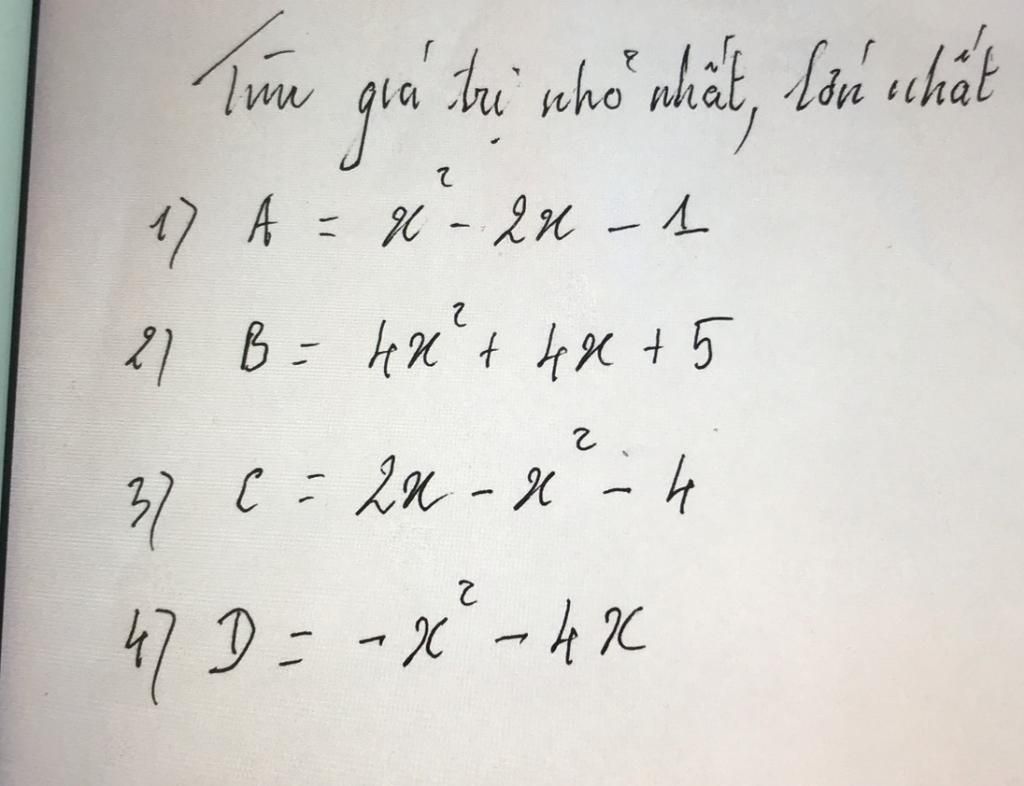 Tìm giá trị nhỏ nhất, lớn nhất
1) A = x² - 2x - 1
2) B = 4x² + 4x + 5
3) C = 2x - x² - 4
4) D = -x² - 4x